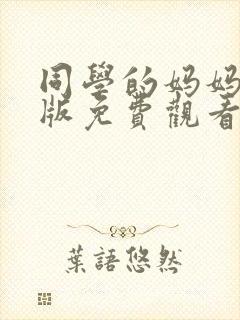 同學的媽媽
版免費觀看
葉語悠然